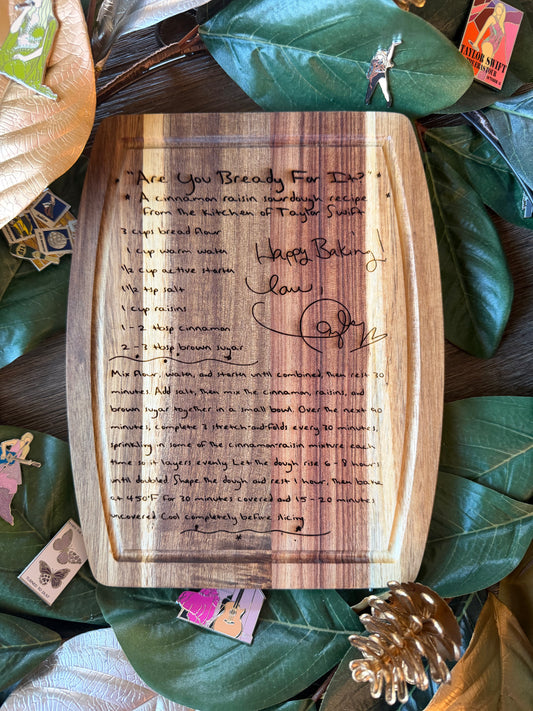 TAYLOR SWIFT
"Are You Bready For It?"
A cinnamon raisin sourdough recipe
From the Kitchen of Taylor Swift
3 cups bread flour
1 cup warm water
1/2 cup active starter
1 1/2 tsp salt
1 cup raisins
1-2 tbsp cinnamon
2-3 tbsp brown sugar
Happy Baking!
Love,
Taylor
Mix flour, water, and starter until combined, then rest 30
minutes. Add salt, then mix the cinnamon, raisins, and
brown sugar together in a small bowl. Over the next 90
minutes, complete 3 stretch-and-folds every 30 minutes,
sprinkling in some of the cinnamon-raisin mixture each
time so it layers evenly. Let the dough rise 6-8 hours
until doubled. Shape the dough and rest 1 hour, then bake
at 450°F for 30 minutes covered and 15-20 minutes
uncovered. Cool completely before slicing